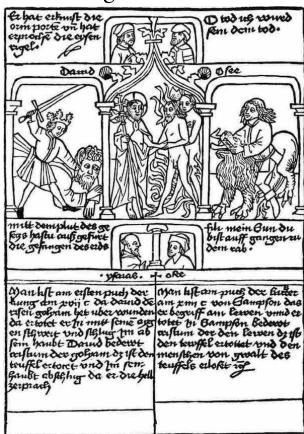 Er hat erknist die
orin porte vn hat
erproche die eisen
rigel.
O tod ich wurd
sein dem tod.
David
Osee
mitt dem plut des ge
segs hastu auß gefirt
die gefangen des eids
fili mein Sun du
bist auff gangen zu
dem rab.
ysaias + oke
Man list am ersten puch der
kung am xvij c da david de
risen goliam het uber wunden
da ertotet er in mit seine
en schwert und schlug im ab
sein haubt David bedewt
xpistum der goliam dz ist den
teuffel ertotet und im sein
haubt abschlug da er die hell
zerprach
Man list am puch der richter
am xiiij c von Sampson das
er begruff am lewen vnd er
totet in Sampson bedewt
xpistum der den lewen dz ist
den teuffel ertottet und den
menschen von gwalt des
teuffels erlost